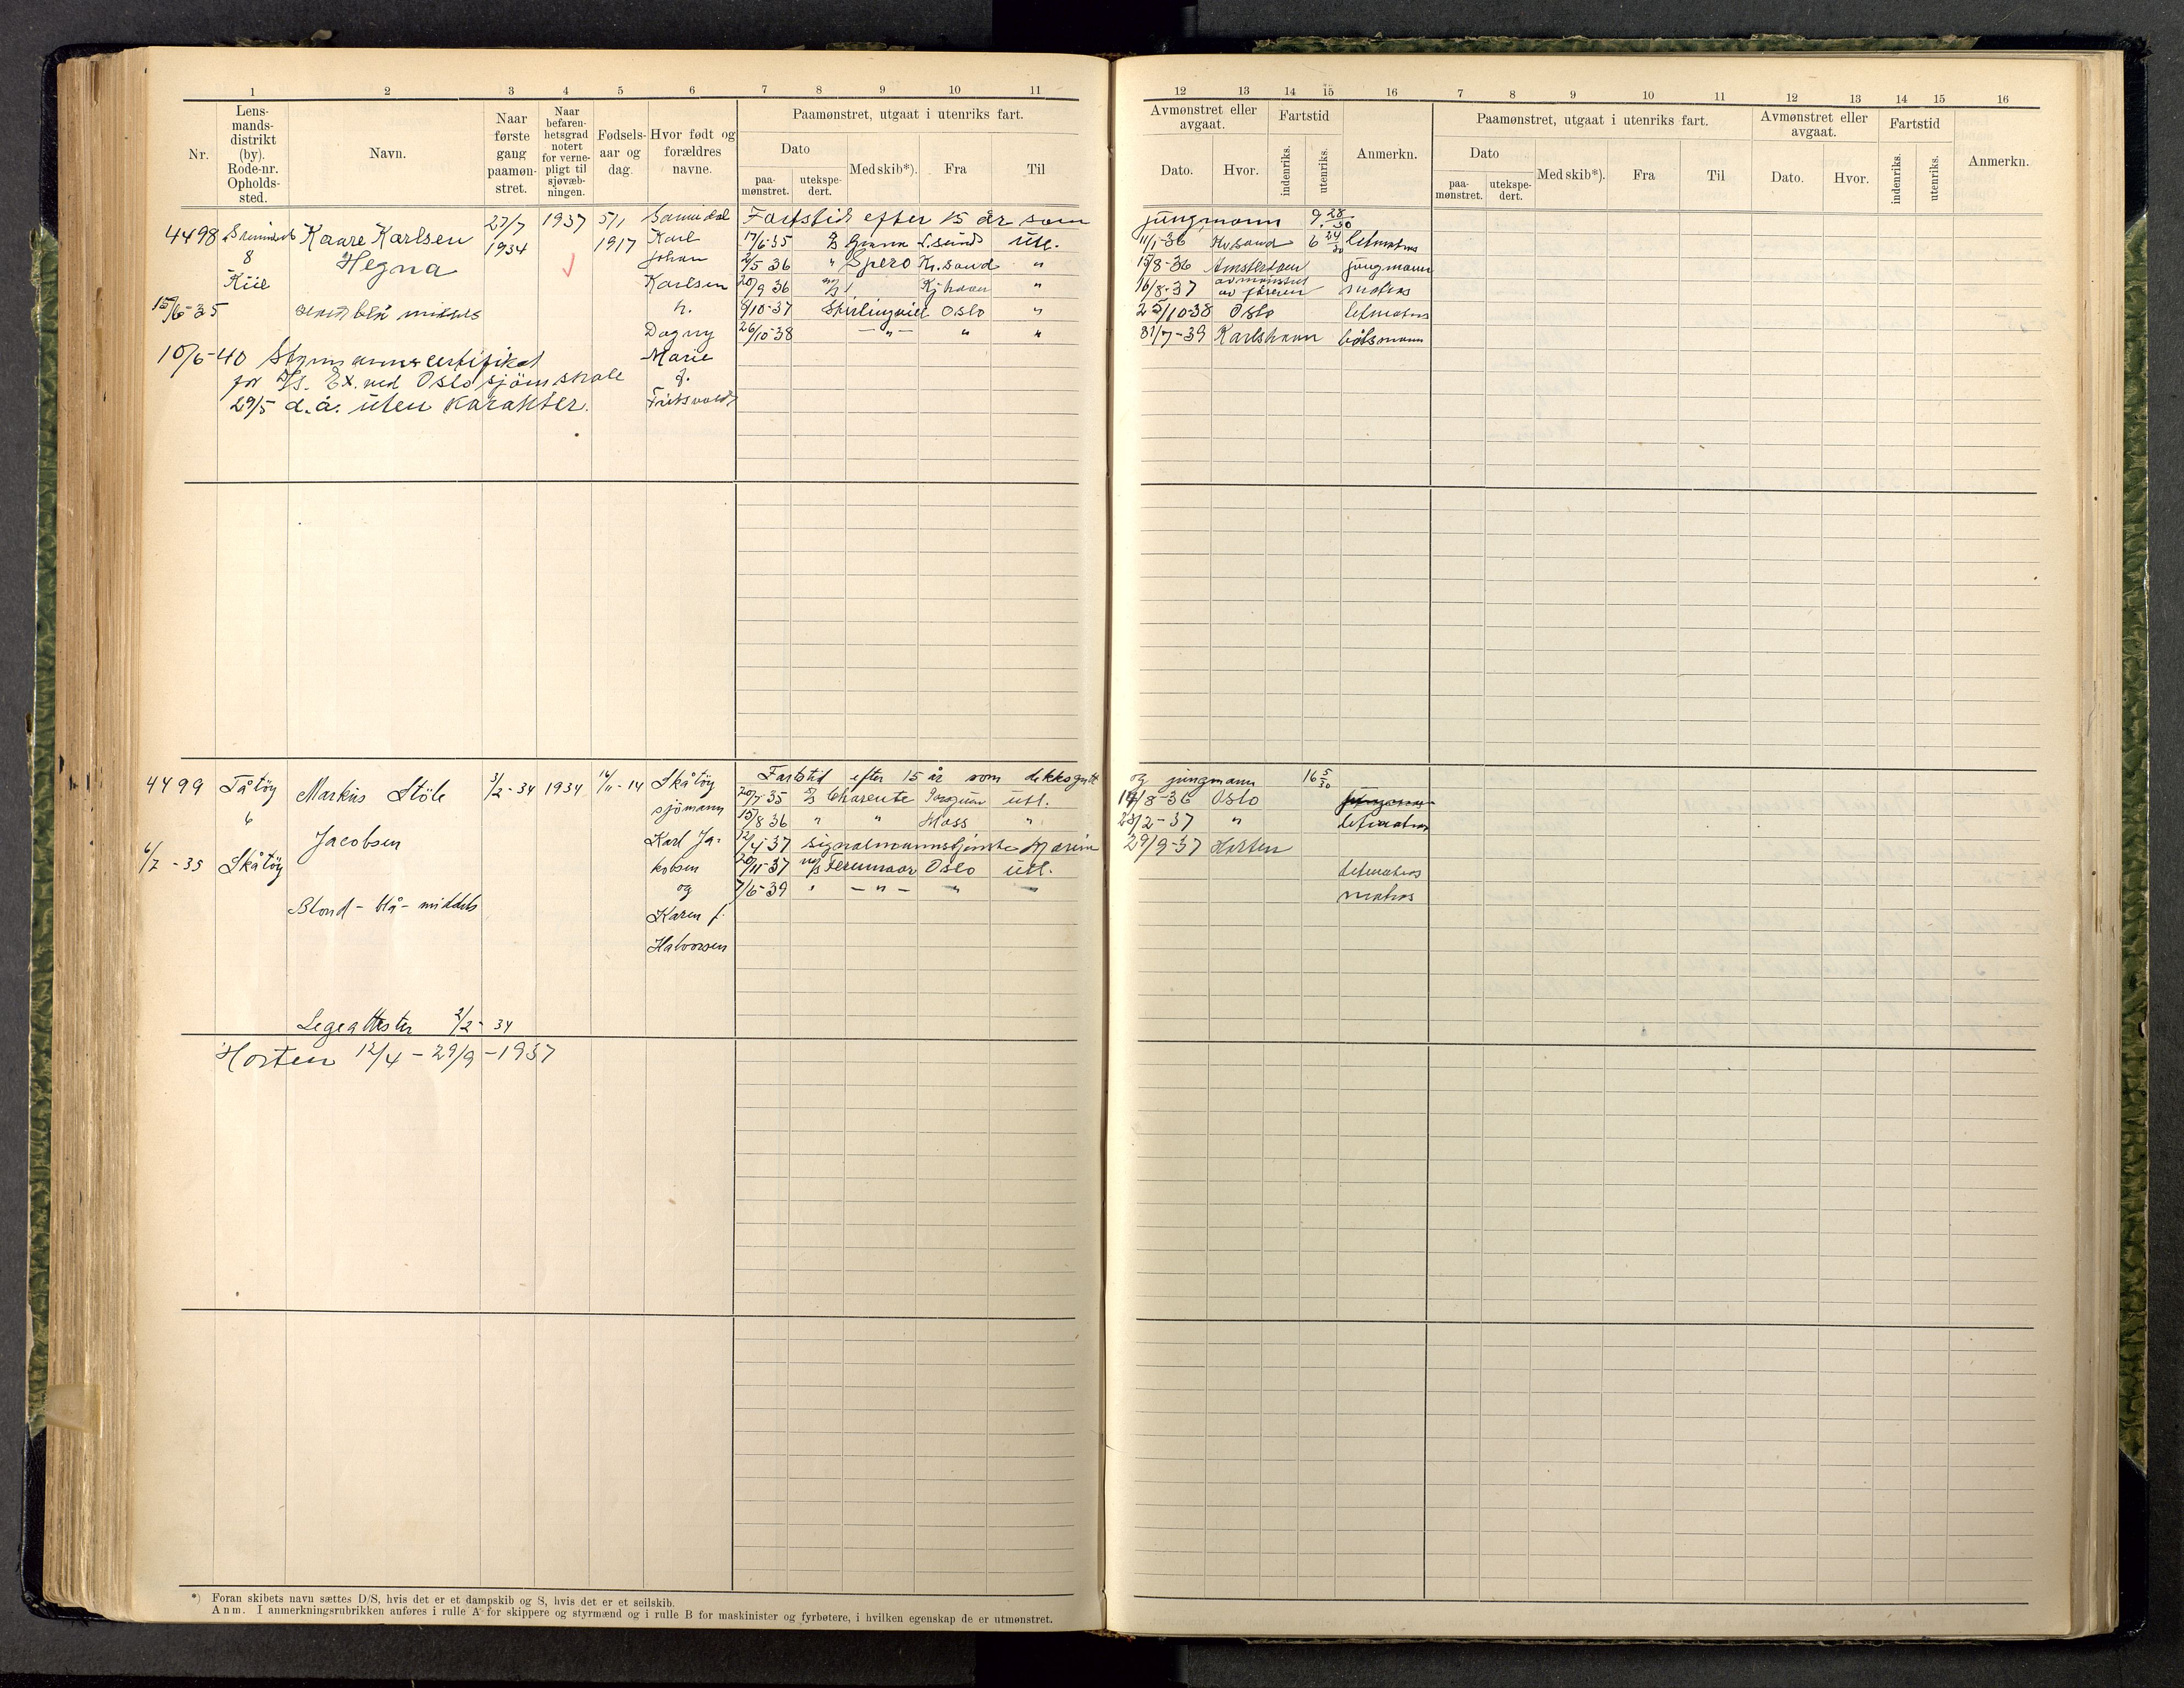 1 2 3 4 5 6 7 8 9 10 11
Nr.
Lens-
mands-
distrikt
(by).
Rode-nr.
Opholds-
sted.
Navn.
Naar
første
gang
paamøn-
stret.
Naar
befaren-
hetsgrad
notert
for verne-
pligt til
sjøvæb-
ningen.
Fødsels-
aar og
dag.
Hvor født og
forældres
navne.
Paamønstret, utgaat i utenriks fart.
Dato
paa-
mønstret.
utekspe-
dert.
Med skib*).
Fra
Til
4498 8 Kiil
Kaare Karlsen
Hegna
27/7
1934
1937
5/1
1917
Sannidal
Karl
Johan
Karlsen
h.
Dagny
Marie
f.
15/6-35
blå middels
10/6-40 Styrmannscertifikat
for Ex. ved Oslo sjömskole
29/5 d.å. uten karakter.
Fartstid efter 15 år som
17/6-35 utl.
2/5 36 " Spero Kr.sand "
20/9 36 Kjhavn "
8/10-37 Oslo "
26/10-38 — " — " "
4499 Tåtöy
6
6/7-35 Skåtöy
Markus Stöle
Jacobsen
Blond - blå - middels
Legeattester 2/2-34
3/2-34 1934 14
Skåtöy
sjömann
Karl Ja-
kobsen
og
Karen f.
Halvorsen
Fartstid efter 15 år som dekksgutt
20/7-35 Charente utl.
15/8 36 " " Moss "
12/4-37 signalmannstjeneste Marin
20/11-37 M/S Oslo utl.
7/6-39 " — " — " "
Horten 12/4 - 29/9 - 1937
*) Foran skibets navn sættes D/S, hvis det er et dampskib og S, hvis det er et seilskib.
Anm. I anmerkningsrubrikken anføres i rulle A for skippere og styrmænd og i rulle B for maskinister og fyrbøtere, i hvilken egenskap de er utmønstret.
12 13 14 15 16 7 8 9 10 11 12 13 14 15 16
Avmønstret eller
avgaat.
Dato.
Hvor.
Fartstid
indenriks.
utenriks.
Anmerkn.
Paamønstret, utgaat i utenriks fart.
Dato
paa-
mønstret.
utekspe-
dert.
Med skib*).
Fra
Til
Avmønstret eller
avgaat.
Dato.
Hvor.
Fartstid
indenriks.
utenriks.
Anmerkn.
jungmann 9 28/30
11/1-36 Kr.sand 6 24/30 letmatros
15/8-36 Amsterdam jungmann
16/8-37 avmönstret
av föreren matros
25/10-38 Oslo letmatros
31/7-39 Karlshavn båtsmann
og jungmann 16 5/30
14/8-36 Oslo jungmann
23/2-37 " letmatros
29/9-37 Horten
letmatros
matros